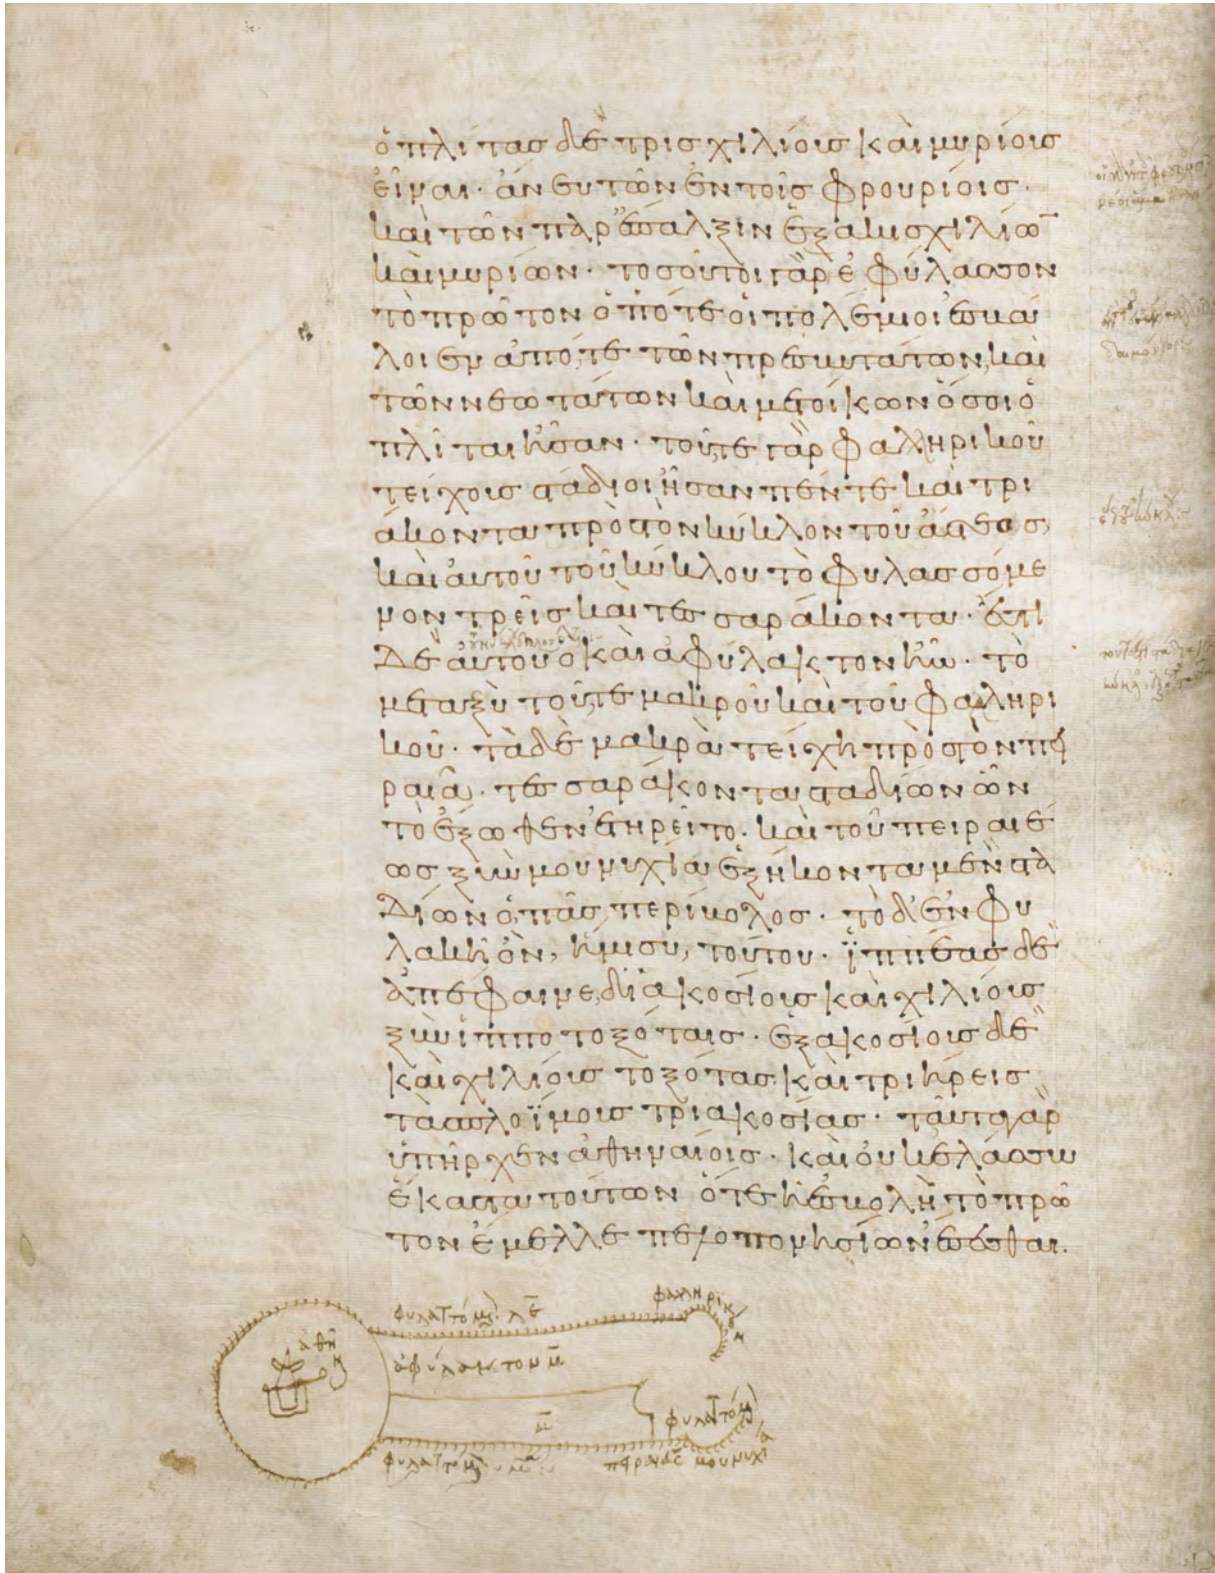 ὁπλίτας δὲ τρισχιλίους καὶ μυρίους
εἶναι· ἄνευ τῶν ἐν τοῖς φρουρίοις·
καὶ τῶν παρ' ἔπαλξιν ἑξακισχιλίω̅
καὶ μυρίων· τοσοῦτοι γὰρ ἐφύλασσον
τὸ πρῶτον ὁπότε οἱ πολέμιοι ἐσβά
λοιεν ἀπό τε τῶν πρεσβυτάτων, καὶ
τῶν νεωτάτων καὶ μετοίκων ὅσοι ὁ
πλῖται ἦσαν· τοῦ τε γὰρ φαληρικοῦ
τείχους στάδιοι ἦσαν πέντε καὶ τρι
άκοντα πρὸς τὸν κύκλον τοῦ ἄστεος,
καὶ αὐτοῦ τοῦ κύκλου τὸ φυλασσόμε
νον τρεῖς καὶ τεσσαράκοντα· ἔστι
δὲ αὐτοῦ ὃ καὶ ἀφύλακτον ἦν· τὸ
μεταξὺ τοῦ τε μακροῦ καὶ τοῦ φαληρι
κοῦ· τὰ δὲ μακρὰ τείχη πρὸς τὸν πει
ραιᾶ· τεσσαράκοντα σταδίων ὧν
τὸ ἔξωθεν ἐτηρεῖτο· καὶ τοῦ πειραιέ
ως ξὺν μουνυχίᾳ ἑξήκοντα μὲν στα
δίων ὁ πᾶς περίβολος· τὸ δ' ἐν φυ
λακῇ ὂν, ἥμισυ, τούτου· ἱππέας δὲ
ἀπέφαινε, διακοσίους καὶ χιλίους
ξὺν ἱπποτοξόταις· ἑξακοσίους δὲ
καὶ χιλίους τοξότας καὶ τριήρεις
τὰς πλοΐμους τριακοσίας· ταῦτα γὰρ
ὑπῆρχεν ἀθηναίοις· καὶ οὐκ ἐλάσσω
ἕκαστα τούτων ὅτε ἡ ἐσβολὴ τὸ πρῶ
τον ἔμελλε πελοποννησίων ἔσεσθαι.
φαληρικὸν
ἀθῆν
ἀφύλακτον
μουνυχία